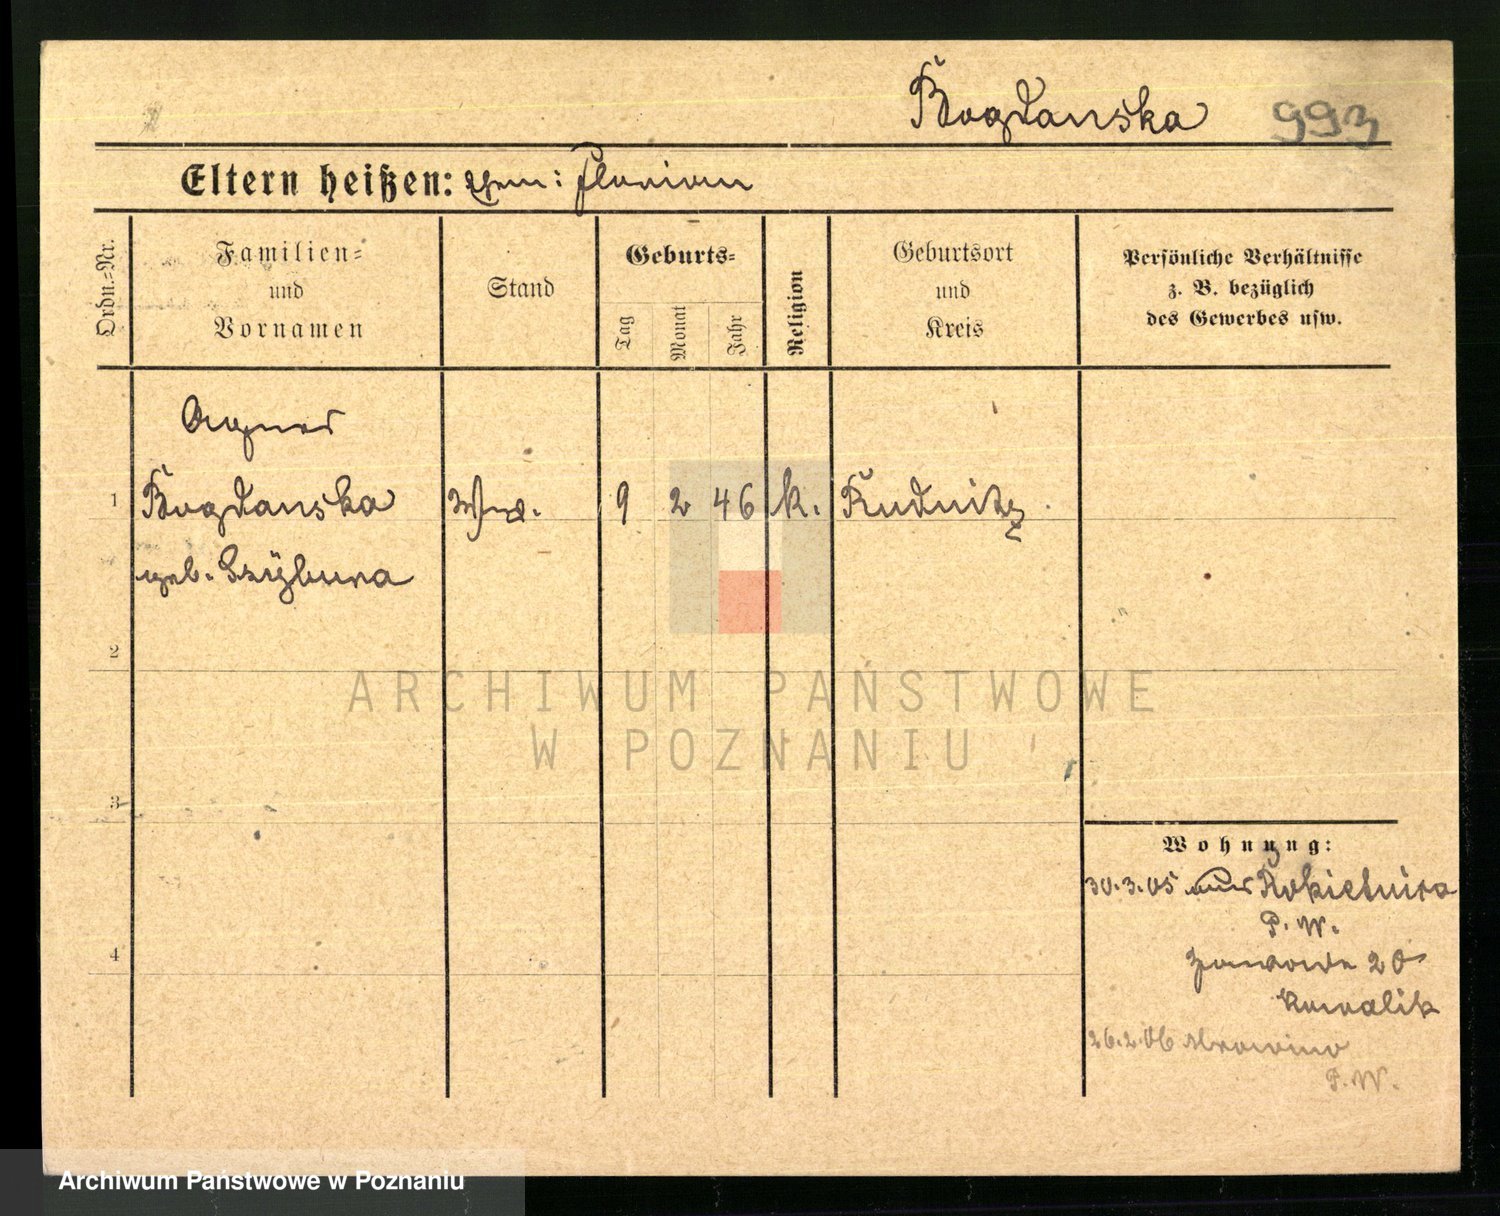 Bogdanska 993
Eltern heißen: Ehem: Florian
Ordn.-Nr.
Familien-
und
Vornamen
Stand
Geburts-
Tag
Monat
Jahr
Religion
Geburtsort
und
Kreis
Persönliche Verhältnisse
z. B. bezüglich
des Gewerbes usw.
Agnes
1 Bogdanska Ww. 9 2 46 k. Rudnitz
geb.
2
ARCHIWUM PAŃSTWOWE
W POZNANIU
3
Wohnung:
30.3.05 aus Rokietnica
P. W.
4
Zawade 20
Kowalik
26.2.06 Mrowino
P. W.
Archiwum Państwowe w Poznaniu